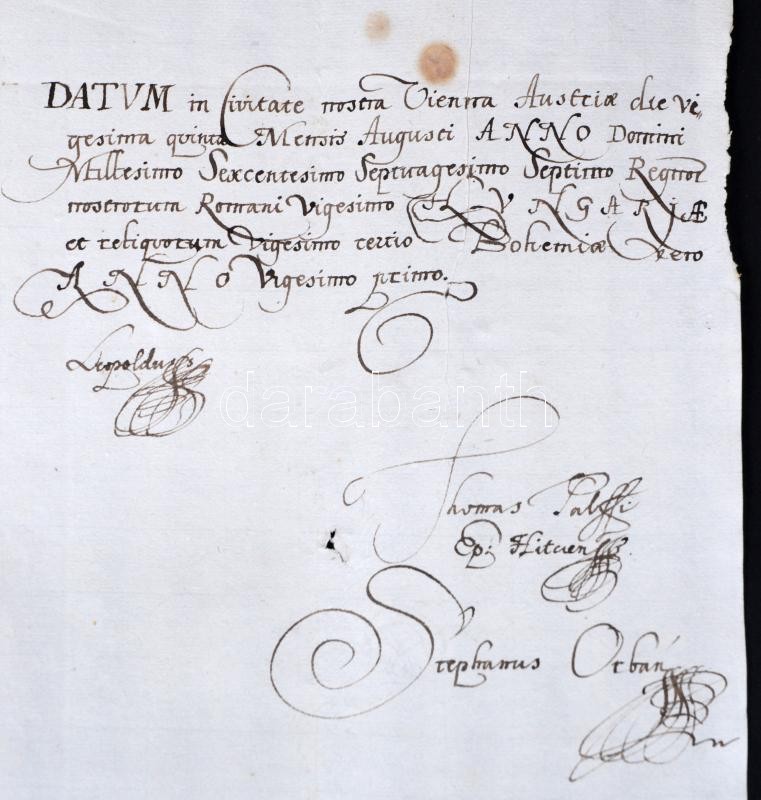 DATVM in Civitate nostra Vienna Austriæ die vi-
gesima quinta Mensis Augusti ANNO Domini
Millesimo Sexcentesimo Septuagesimo Septimo Regnor
nostrorum Romani Vigesimo HVNGARIÆ
et reliquorum Vigesimo tertio Bohemiæ Vero
ANNO Vigesimo primo.
Leopoldus
darabanth
Thomas Palffi
Ep: Nitriens
Stephanus Orbán